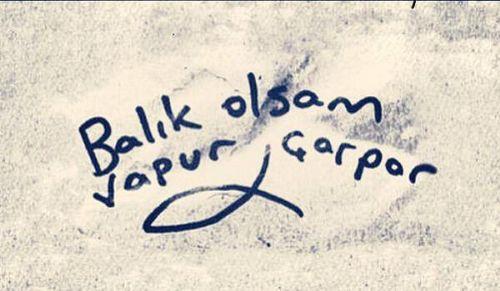 Balık olsam
vapur çarpar